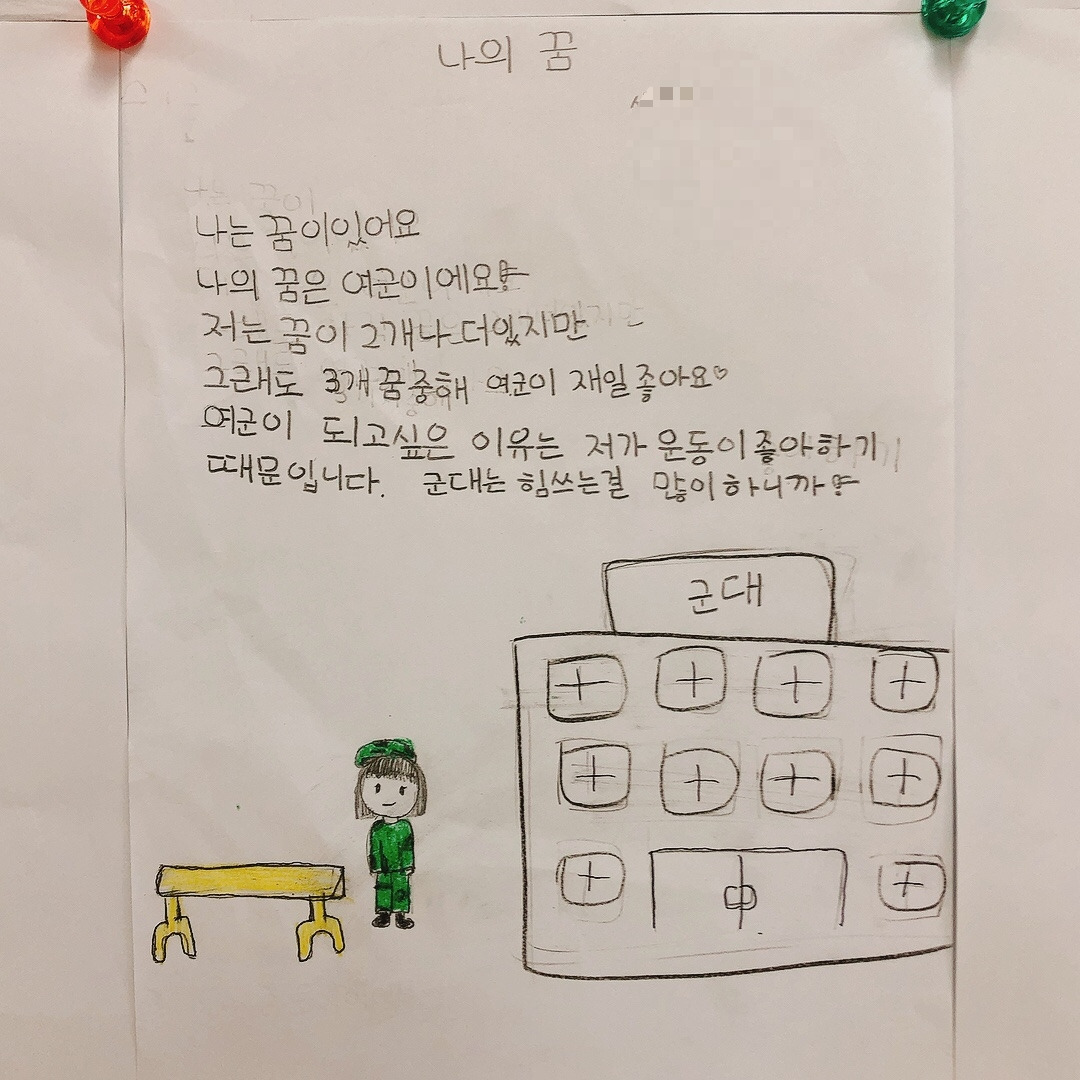 나의 꿈
나는 꿈이있어요
나의 꿈은 여군이에요!
저는 꿈이 2개나 더있지만
그래도 3개꿈중해 여군이 재일좋아요♡
여군이 되고싶은 이유는 저가 운동이좋아하기
때문입니다. 군대는 힘쓰는걸 많이하니까!
군대